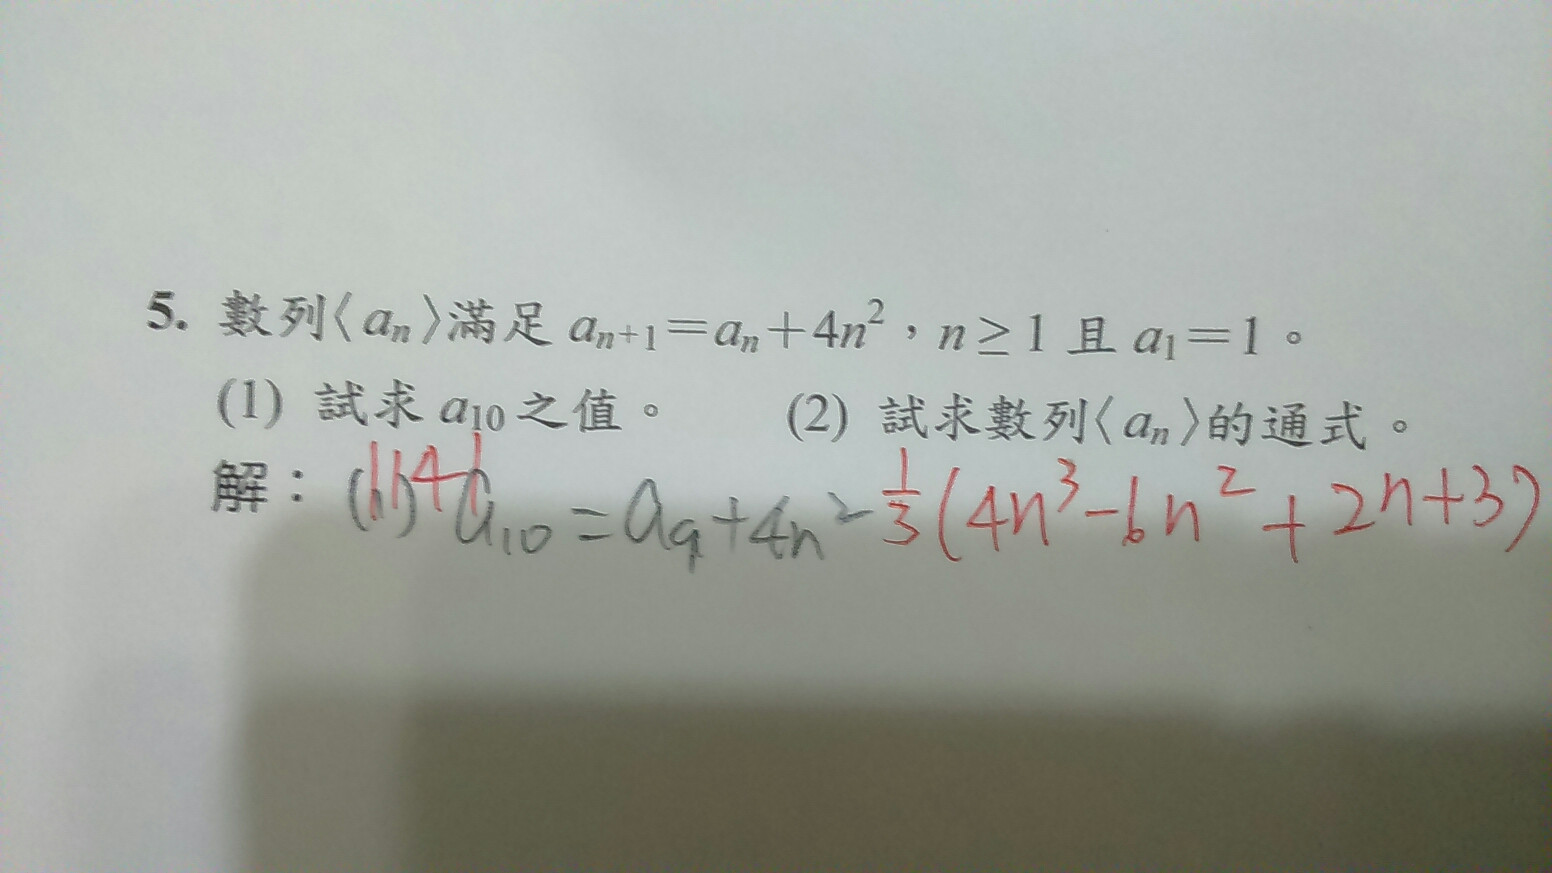 5. 數列⟨aₙ⟩滿足 aₙ₊₁=aₙ+4n²，n≥1 且 a₁=1。
(1) 試求 a₁₀ 之值。 (2) 試求數列⟨aₙ⟩的通式。
解： (1) 1141 a₁₀=a₉+4n² 1/3(4n³-6n²+2n+3)